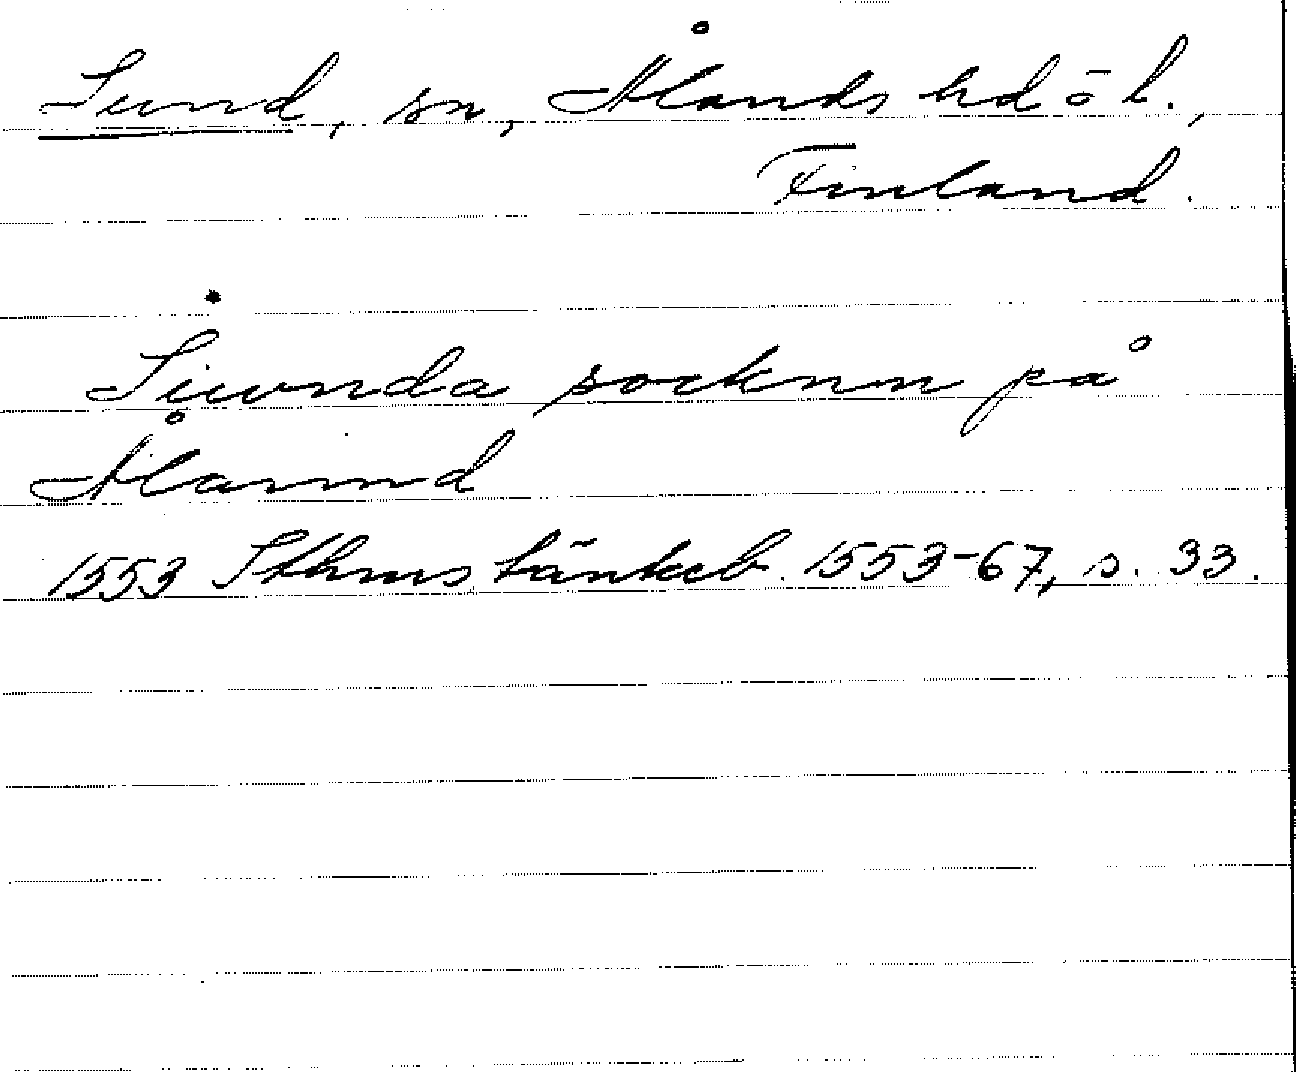 Sund, sn, Ålands hd o l.,
Finland.
Siwnda socknnn på
Ålannd
1553 Sthms tänkeb. 1553-67, s. 33.